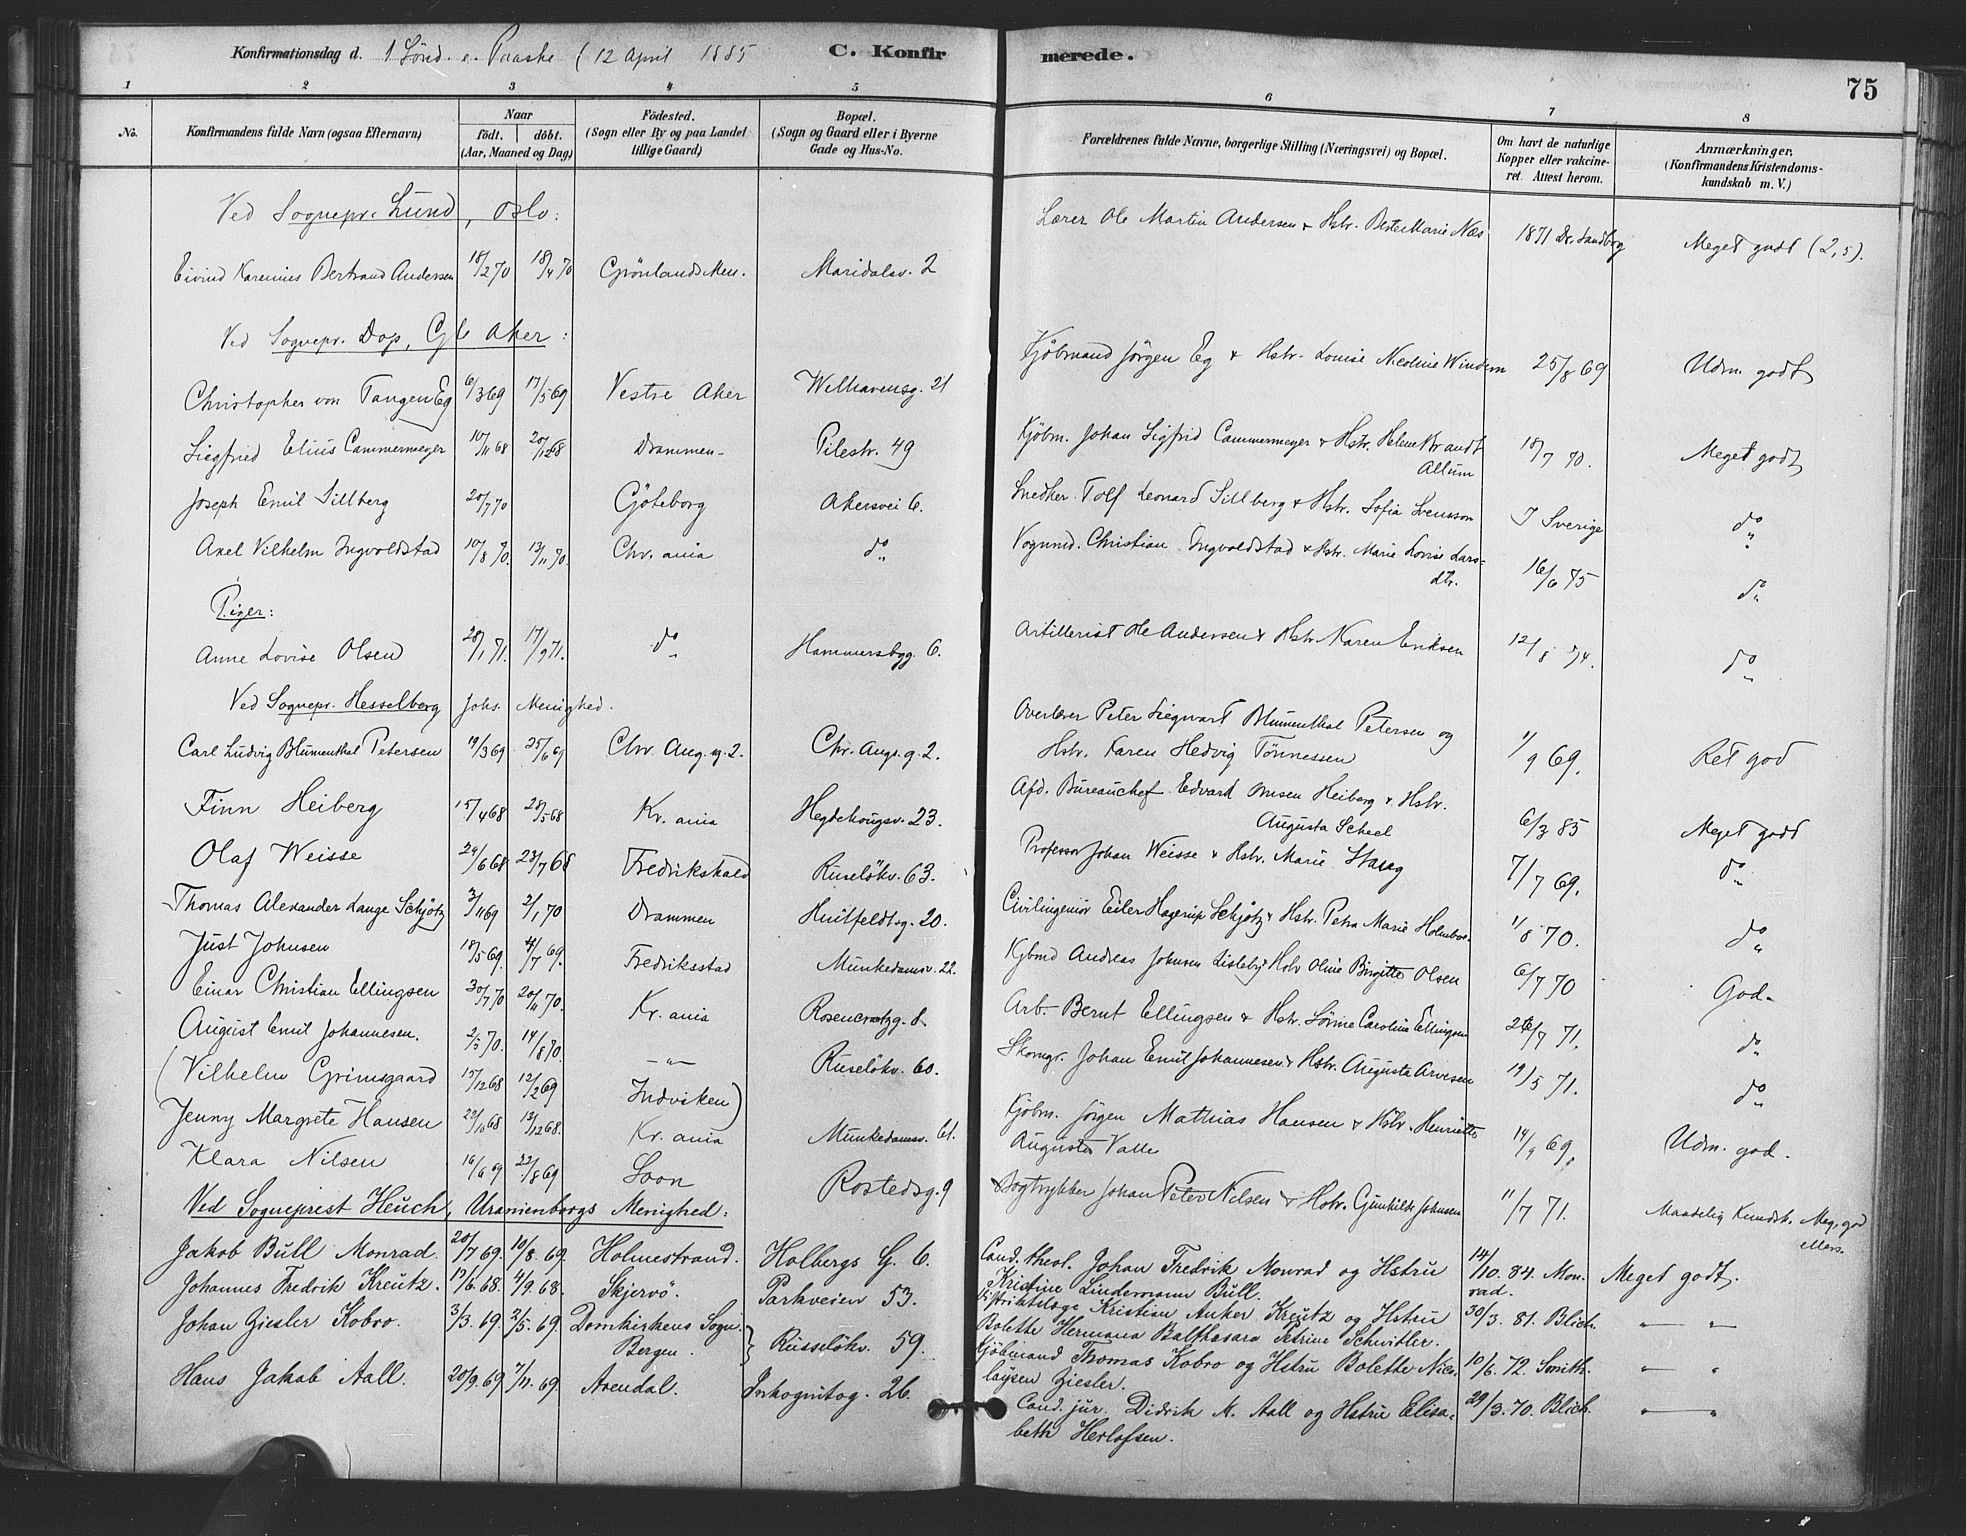 Konfirmationsdag d. 1 Sönd. e. Paaske (12 April 1885 C. Konfir merede. 75
1 2 3 4 5 6 7 8
No. Konfirmandens fulde Navn (ogsaa Efternavn) Naar födt. döbt. (Aar, Maaned og Dag) Födested. (Sogn eller By og paa Landet tillige Gaard) Bopæl. (Sogn og Gaard eller i Byerne Gade og Hus-No. Forældrenes fulde Navne, borgerlige Stilling (Næringsvei) og Bopæl. Om havt de naturlige Kopper eller vakcineret. Attest herom. Anmærkninger, (Konfirmandens Kristendomskundskab m. V.)
Ved Sognepr. Lund, Oslo:
Eivind Karenius Bertrand Andersen 18/2 70 18/4 70 Grönlands Men. Maridalsv. 2 Lærer Ole Martin Andersen & Hstr. Marie Næs 1871 Dr. Sandberg Meget godt (2,5).
Ved Sognepr. Dop, Gl. Aker:
Christopher von Tangen Eg 6/3 69 17/5 69 Vestre Aker Welhavensg. 21 Kjöbmand Jörgen Eg & Hstr. Louise Nicoline 25/8 69 Udm. godt
Siegfried Elius Cammermeyer 10/11 68 20/12 68 Drammen Pilestr. 49 Kjöbm. Johan Sigfrid Cammermeyer & Hstr. Helene Brandt Allum 18/7 70. Meget godt
Joseph Emil Sillberg 20/7 70 Göteborg Akersvei 6. Snedker. Tolf Leonard Sillberg & Hstr. Sofia Svensson I Sverige do
Axel Vilhelm Ingvoldstad 10/8 70. 13/11 70. Chr. ania do Vognmd. Christian Ingvoldstad & Hstr. Marie Lovise Larsdtr. 16/6 75 do
Piger:
Anne Lovise Olsen 28/1 71. 17/9 71. do Hammersbgg. 6. Artillerist Ole Andersen & Hstr Karen Eriksen 12/8 74. do
Ved Sognepr. Hesselberg Johs. Menighed.
Carl Ludvig Blumenthal Petersen 19/3 69 25/6 69 Chr. Aug. g. 2. Chr. Augs. g. 2. Overlærer Peter Siegwart Blumenthal Petersen og Hstr. Karen Hedvig Tönnessen 1/9 69. Ret god
Finn Heiberg 15/4 68 28/5 68 Kr. ania Hegdehougsv. 23. Afd. Bureauchef Edvard Omsen Heiberg & Hstr. Augusta Scheel 6/3 85 Meget godt
Olaf Weisse 24/6 68 23/7 68 Fredrikshald Ruselökv. 63. Professor Johan Weisse & Hstr. Marie Stang 7/7 69. do
Thomas Alexander Lange Schjötz 3/11 69 2/1 70 Drammen Huitfeldtsg. 20. Civilingeniör Eiler Hagerup Schjötz & Hstr. Petra Marie Holmboe 1/8 70. do
Just Johnsen 18/5 69. 4/7 69. Fredriksstad Munkedamsv. 22. Kjbmd Andreas Johnsen Lisleby & Hstr Oline Birgitte Olsen 6/7 70 God
Einar Christian Ellingsen 30/7 70 20/11 70. Kr. ania Rosencrantzg. 8. Arb. Bernt Ellingsen & Hstr. Sörine Caroline Ellingsen 26/7 71. do
August Emil Johannesen. 2/5 70. 14/8 70. — " — Ruselökv. 60. Skomgr. Johan Emil Johannesen & Hstr. Augusta Arvesen 19/5 71. do
(Vilhelm Grimsgaard 15/12 68 12/2 69 Indviken)
Jenny Margrete Hansen 22/10 68 13/12 68. Kr. ania Munkedamsv. 61. Kjöbm. Jörgen Mathias Hansen & Hstr. Henriette Augusta Valle 14/9 69. Udm. god.
Klara Nilsen 16/6 69 22/8 69 Soon Rostedsg. 9 Bogtrykker Johan Peter Nilsen & Hstr. Gunhilde Johnsen 11/7 71. Maadelig Kundsk. Meg. god
Ved Sogneprest Heuch, Uranienborgs Menighed:
Jakob Bull Monrad. 20/7 69. 10/8 69. Holmestrand. Holbergs G. 6. Cand. theol. Johan Fredrik Monrad og Hstru Kristine Lindemann Bull. 14/10. 84. Monrad. Meget godt.
Johannes Fredrik Kreutz. 15/6. 68. 4/9. 68. Skjervö. Parkveien 53. Distriktslæge Kristian Anker Kreutz og Hstru Bolette Hermana Balthasara Petrine Schwitler. 30/3. 81. Blich. — " —
Johan Ziesler Kobro. 3/3. 69. 2/5. 69. Domkirkens Sogn. Bergen. Russelökv. 59. Kjöbmand Thomas Kobro og Hstru Bolette Nicolaysen Ziesler. 10/6. 72. Smith. — "
Hans Jakob Aall. 20/9. 69 7/11. 69. Arendal. Inkognitog. 26. Cand. jur. Didrik M. Aall og Hstru Elisabeth Herlofsen. 29/3. 70. Blich. — "